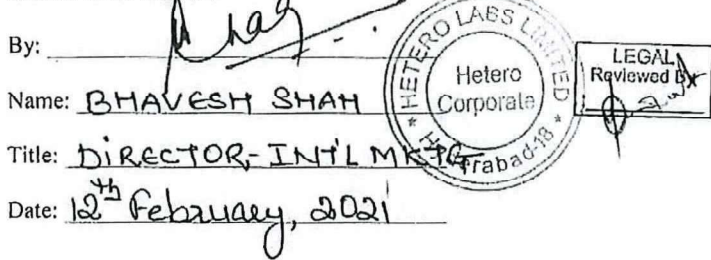 By:
Name: BHAVESH SHAH
Title: DIRECTOR-INT'L MKTG
Date: 12th February, 2021
HETERO LABS LIMITED
Hetero
Corporate
Hyderabad-18
LEGAL
Reviewed By